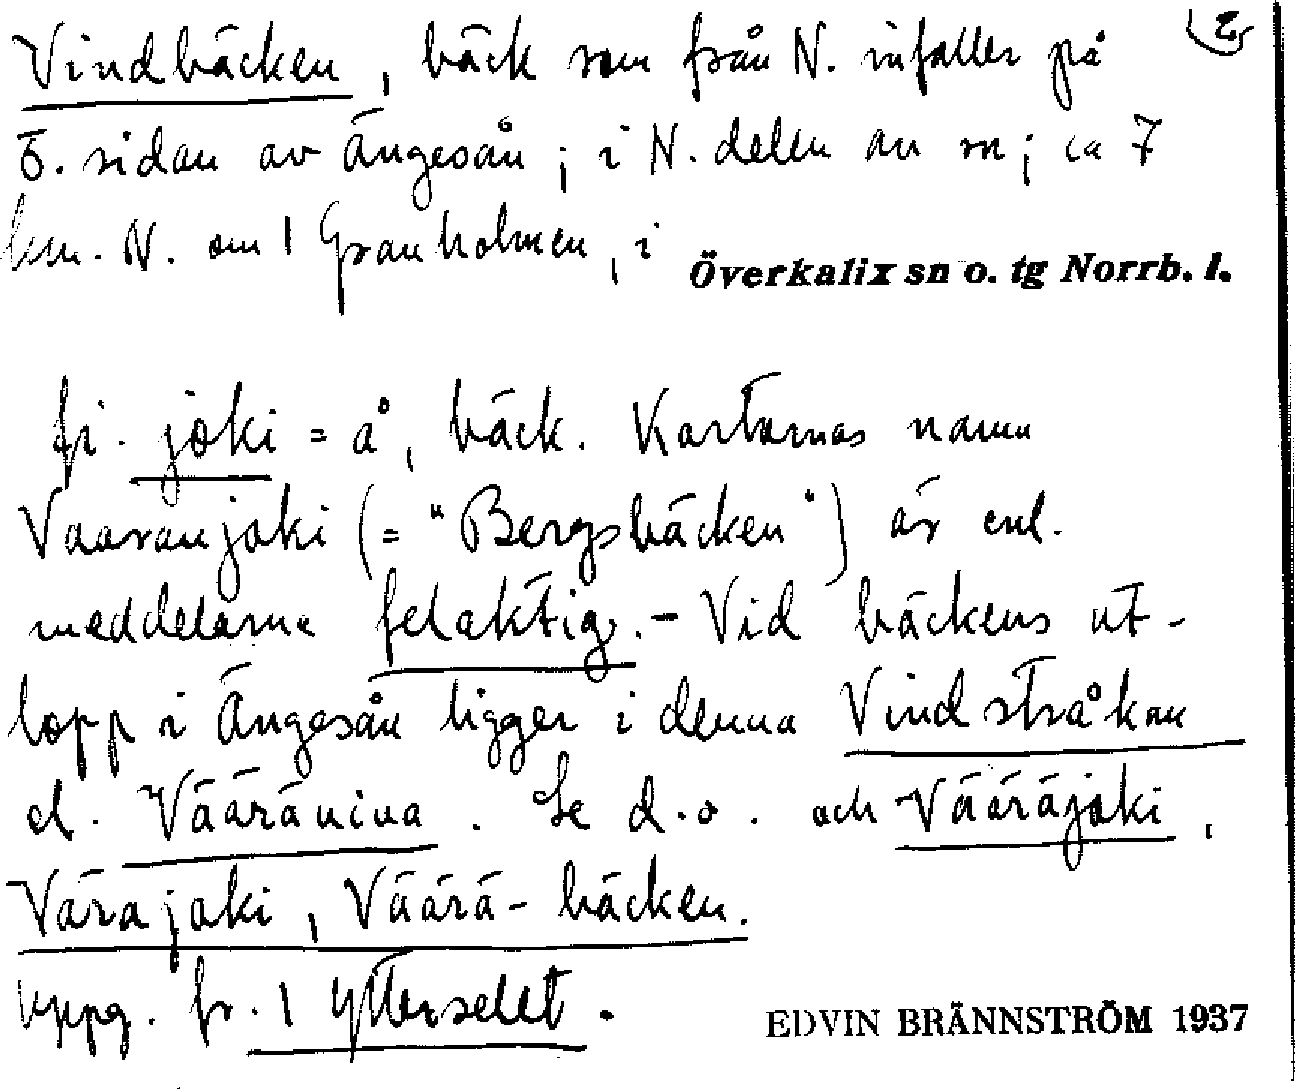 2
Vindbäcken, bäck som från N. infaller på
Ö. sidan av Ängesån; i N. delen av sn; ca 7
km. N. om 1 Granholmen, i Överkalix sn o. tg Norrb. l.
fi. joki = å, bäck. Kartornas namn
Vaaranjoki (= "Bergsbäcken") är enl.
meddelarna felaktig. - Vid bäckens ut-
lopp i Ängesån ligger i denna Vindstråkan
el. Vääräniva. Se d.o. och Vääräjoki,
Värajoki, Väärä-bäcken.
uppg. fr. 1 Ytterselet.
EDVIN BRÄNNSTRÖM 1937